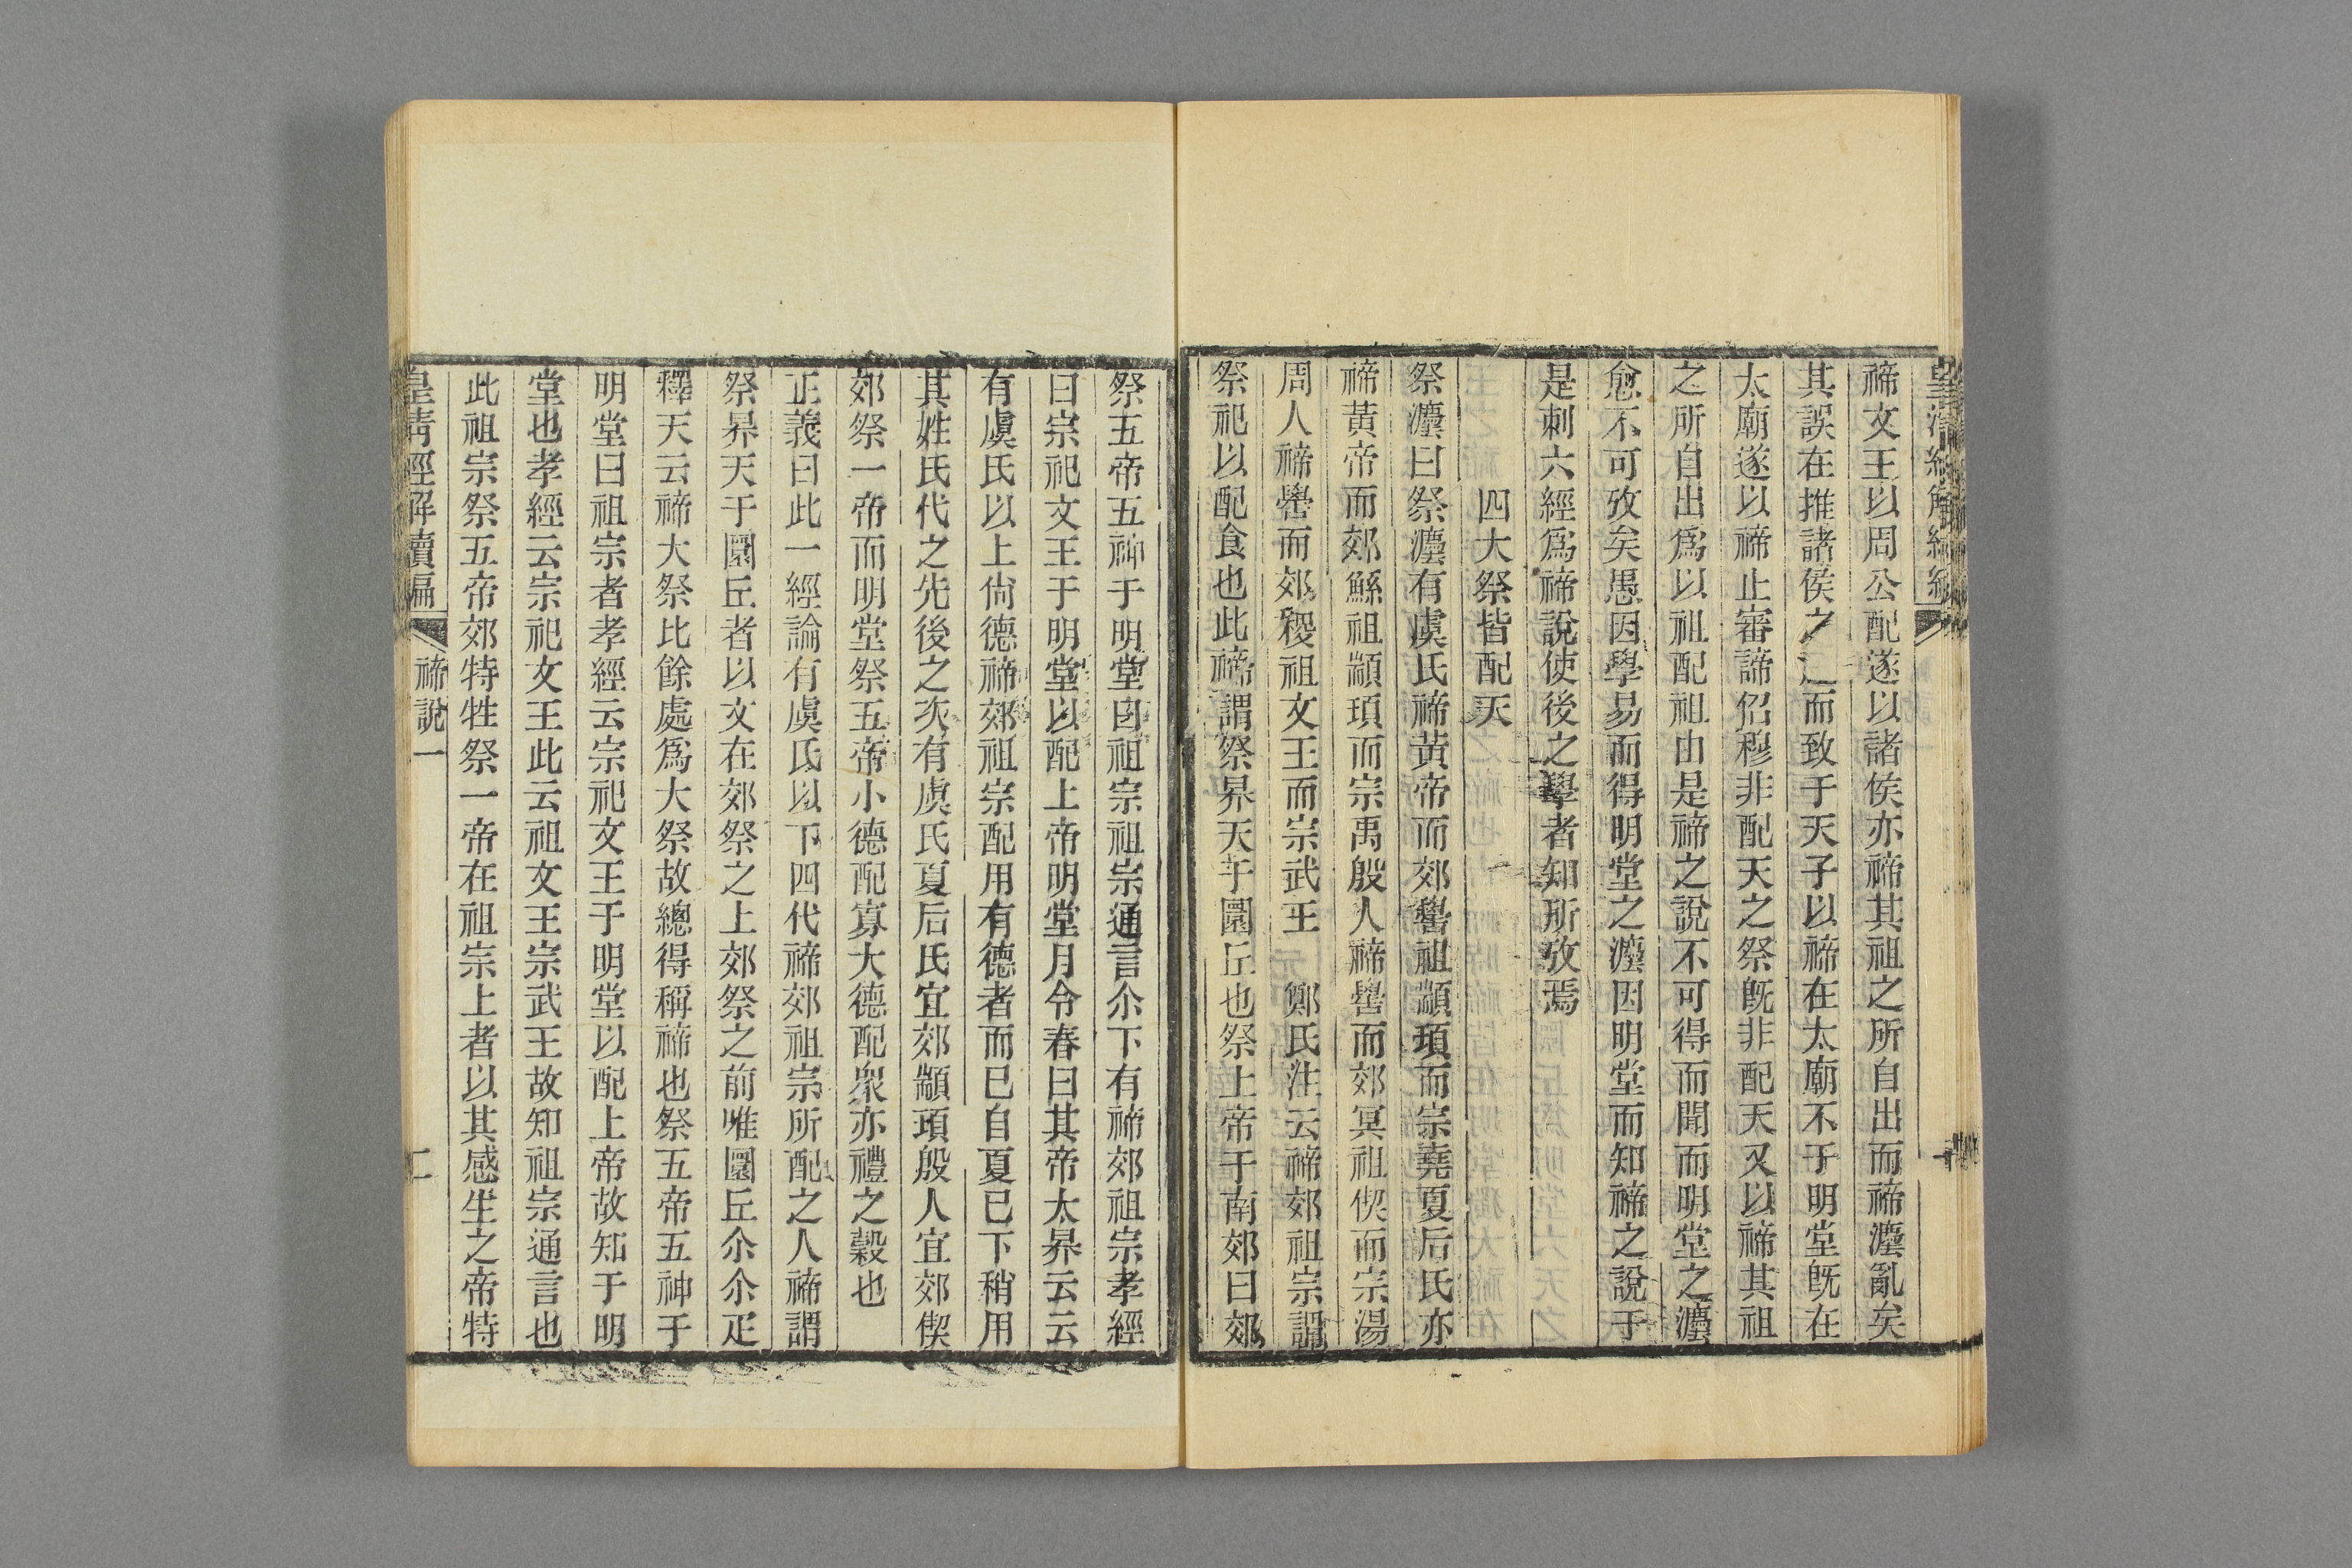 皇清經解續編
禘文王以周公配遂以諸侯亦禘其祖之所自出而禘灋亂矣
其誤在推諸侯之而致于天子以禘在太廟不于明堂旣在
太廟遂以禘止審諦佋穆非配天之祭旣非配天又以禘其祖
之所自出爲以祖配祖由是禘之說不可得而聞而明堂之灋
愈不可攷矣愚因學易而得明堂之灋因明堂而知禘之說于
是刺六經爲禘說使後之學者知所攷焉
四大祭皆配天
祭灋曰祭灋有虞氏禘黃帝而郊嚳祖顓頊而宗堯夏后氏亦
禘黃帝而郊鯀祖顓頊而宗禹殷人禘嚳而郊冥祖偰而宗湯
周人禘嚳而郊稷祖文王而宗武王　鄭氏注云禘郊祖宗謂
祭祀以配食也此禘謂祭昦天于圜丘也祭上帝于南郊曰郊
祭五帝五神于明堂曰祖宗祖宗通言尒下有禘郊祖宗孝經
曰宗祀文王于明堂以配上帝明堂月令春曰其帝太昦云云
有虞氏以上尙德禘郊祖宗配用有德者而已自夏已下稍用
其姓氏代之先後之次有虞氏夏后氏宜郊顓頊殷人宜郊偰
郊祭一帝而明堂祭五帝小德配寡大德配衆亦禮之殺也
正義曰此一經論有虞氏以下四代禘郊祖宗所配之人禘謂
祭昦天于圜丘者以文在郊祭之上郊祭之前唯圜丘尒尒疋
釋天云禘大祭比餘處爲大祭故總得稱禘也祭五帝五神于
明堂曰祖宗者孝經云宗祀文王于明堂以配上帝故知于明
堂也孝經云宗祀文王此云祖文王宗武王故知祖宗通言也
此祖宗祭五帝郊特牲祭一帝在祖宗上者以其感生之帝特
皇清經解續編　禘說一　二